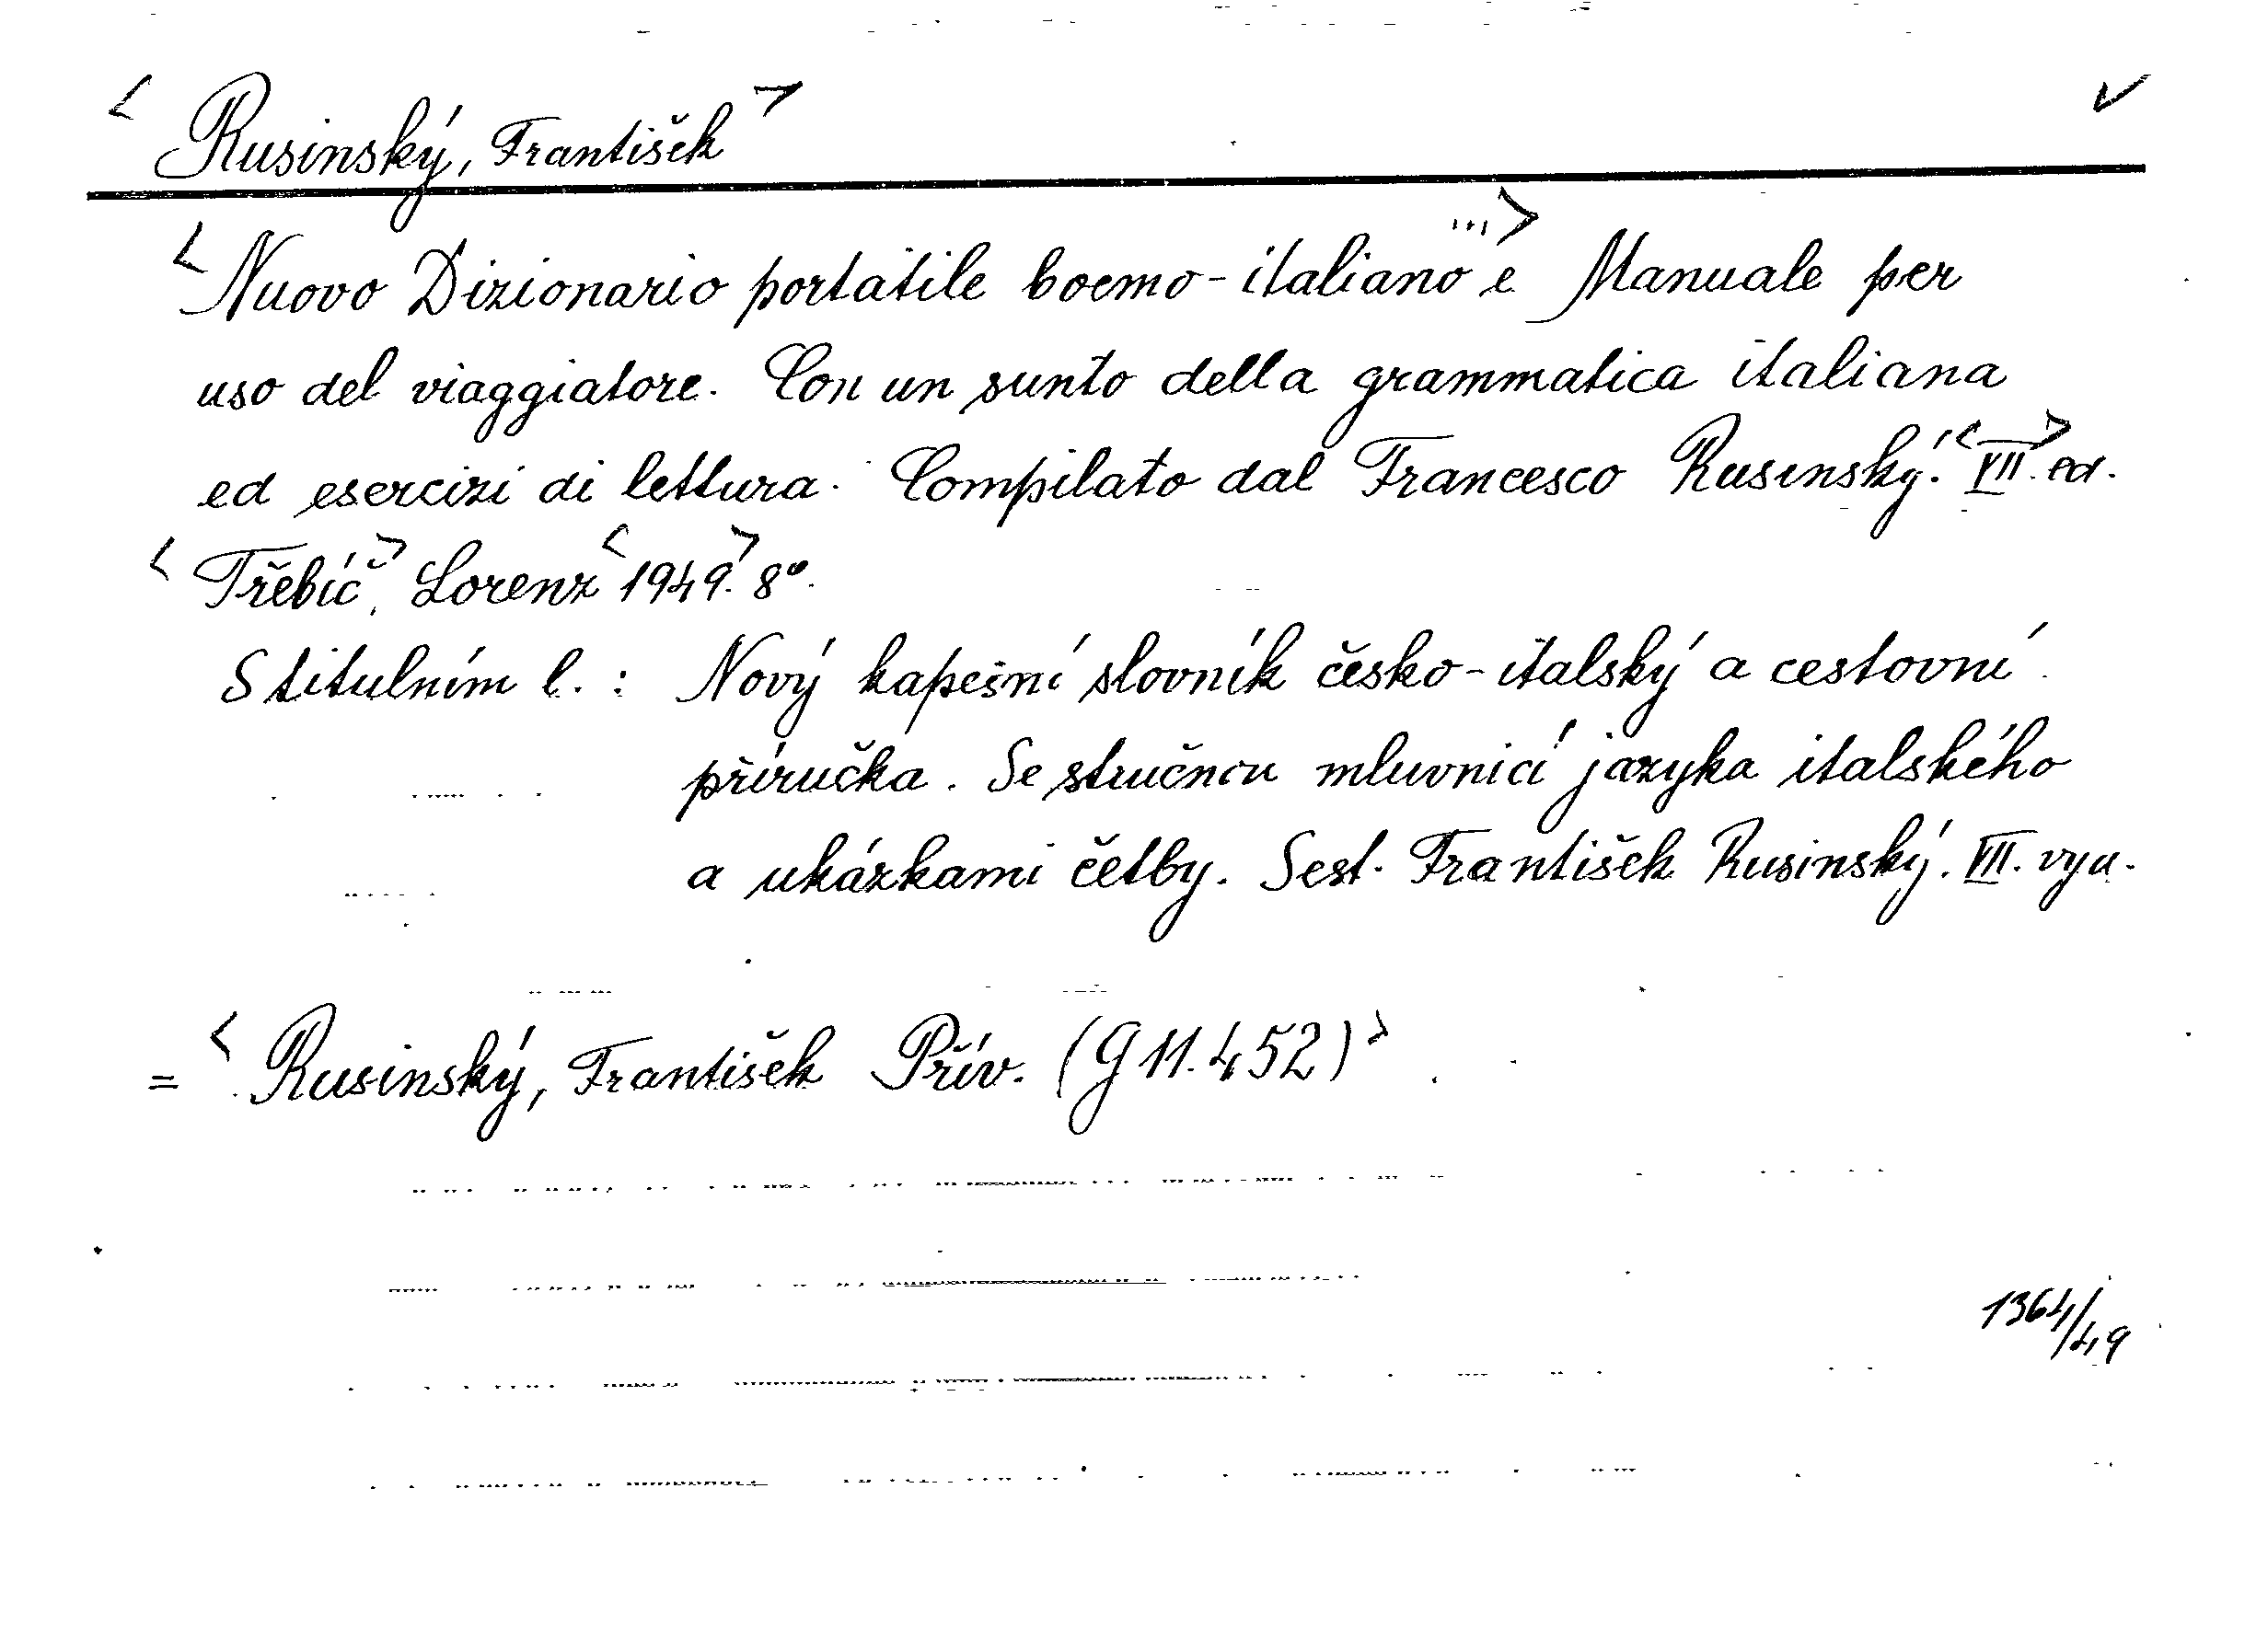 < Rusinský, František > ✓
< Nuovo Dizionario portatile boemo-italiano ... > e Manuale per
uso del viaggiatore. Con un sunto della grammatica italiana
ed esercizi di lettura. Compilato dal Francesco Rusinský. < VII. > ed.
< Třebíč >, Lorenz < 1949. > 8°.
S titulním l. : Nový kapesní slovník česko-italský a cestovní
příručka. Se stručnou mluvnicí jazyka italského
a ukázkami četby. Sest. František Rusinský. VII. vyd.
= < Rusinský, František Přív. (G 11.452) >
1364/49